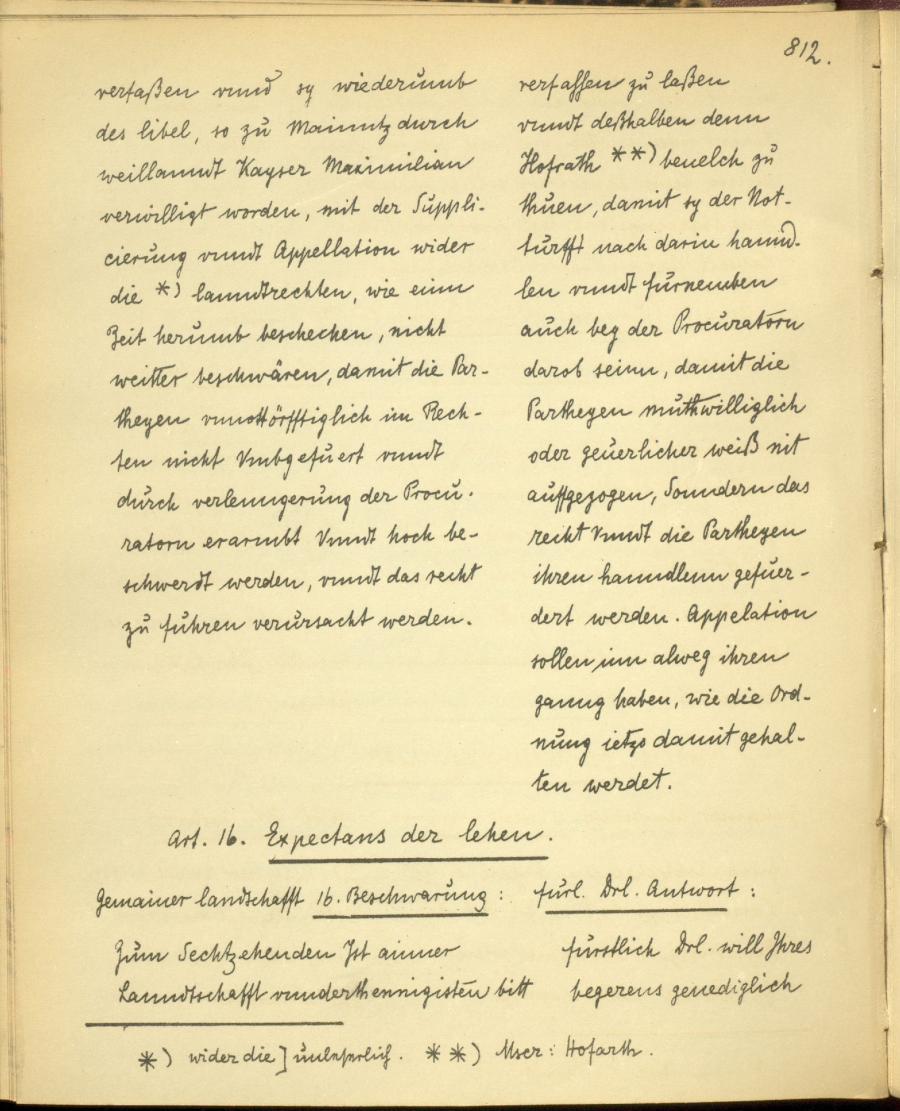 812.
verfaßen vnnd sy wiederumb
des libel, so zu Mainntz durch
weillanndt Kayser Maximilian
verwilligt worden, mit der Suppli-
cierung vnndt Appellation wider
die *) lanndtrechten, wie einn
Zeit herumb beschechen, nicht
weitter beschwären, damit die Par-
theyen vnnottörfftiglich im Rech-
ten nicht Vmbgefuert vnndt
durch verlenngerung der Procu-
ratorn erarmbt Vnndt hoch be-
schwerdt werden, vnndt das recht
zu fuhren verursacht werden.
verfassen zu laßen
vnndt deßhalben denn
Hofrath **) beuelch zu
thuen, damit sy der Not-
turfft nach darin hannd-
len vnndt fürnemben
auch bey der Procuratorn
darob seinn, damit die
Partheyen muthwilliglich
oder geuerlicher weiß nit
auffgezogen, Sonndern das
recht Vnndt die Partheyen
ihren hanndlenn gefuer-
dert werden. Appelation
sollen inn alweg ihren
ganng haben, wie die Ord-
nung ietzo damit gehal-
ten werdet.
Art. 16. Expectans der lehen.
Gemainer landschafft 16. Beschwarung:
fürl. Drl. Antwort:
Zum Sechtzehenden Ist ainner
Lanndtschafft vnnderthennigisten bitt
fürstlich Drl. will Ihres
begerens genediglich
*) wider die] unleserlich. **) Mscr: Hofarth.